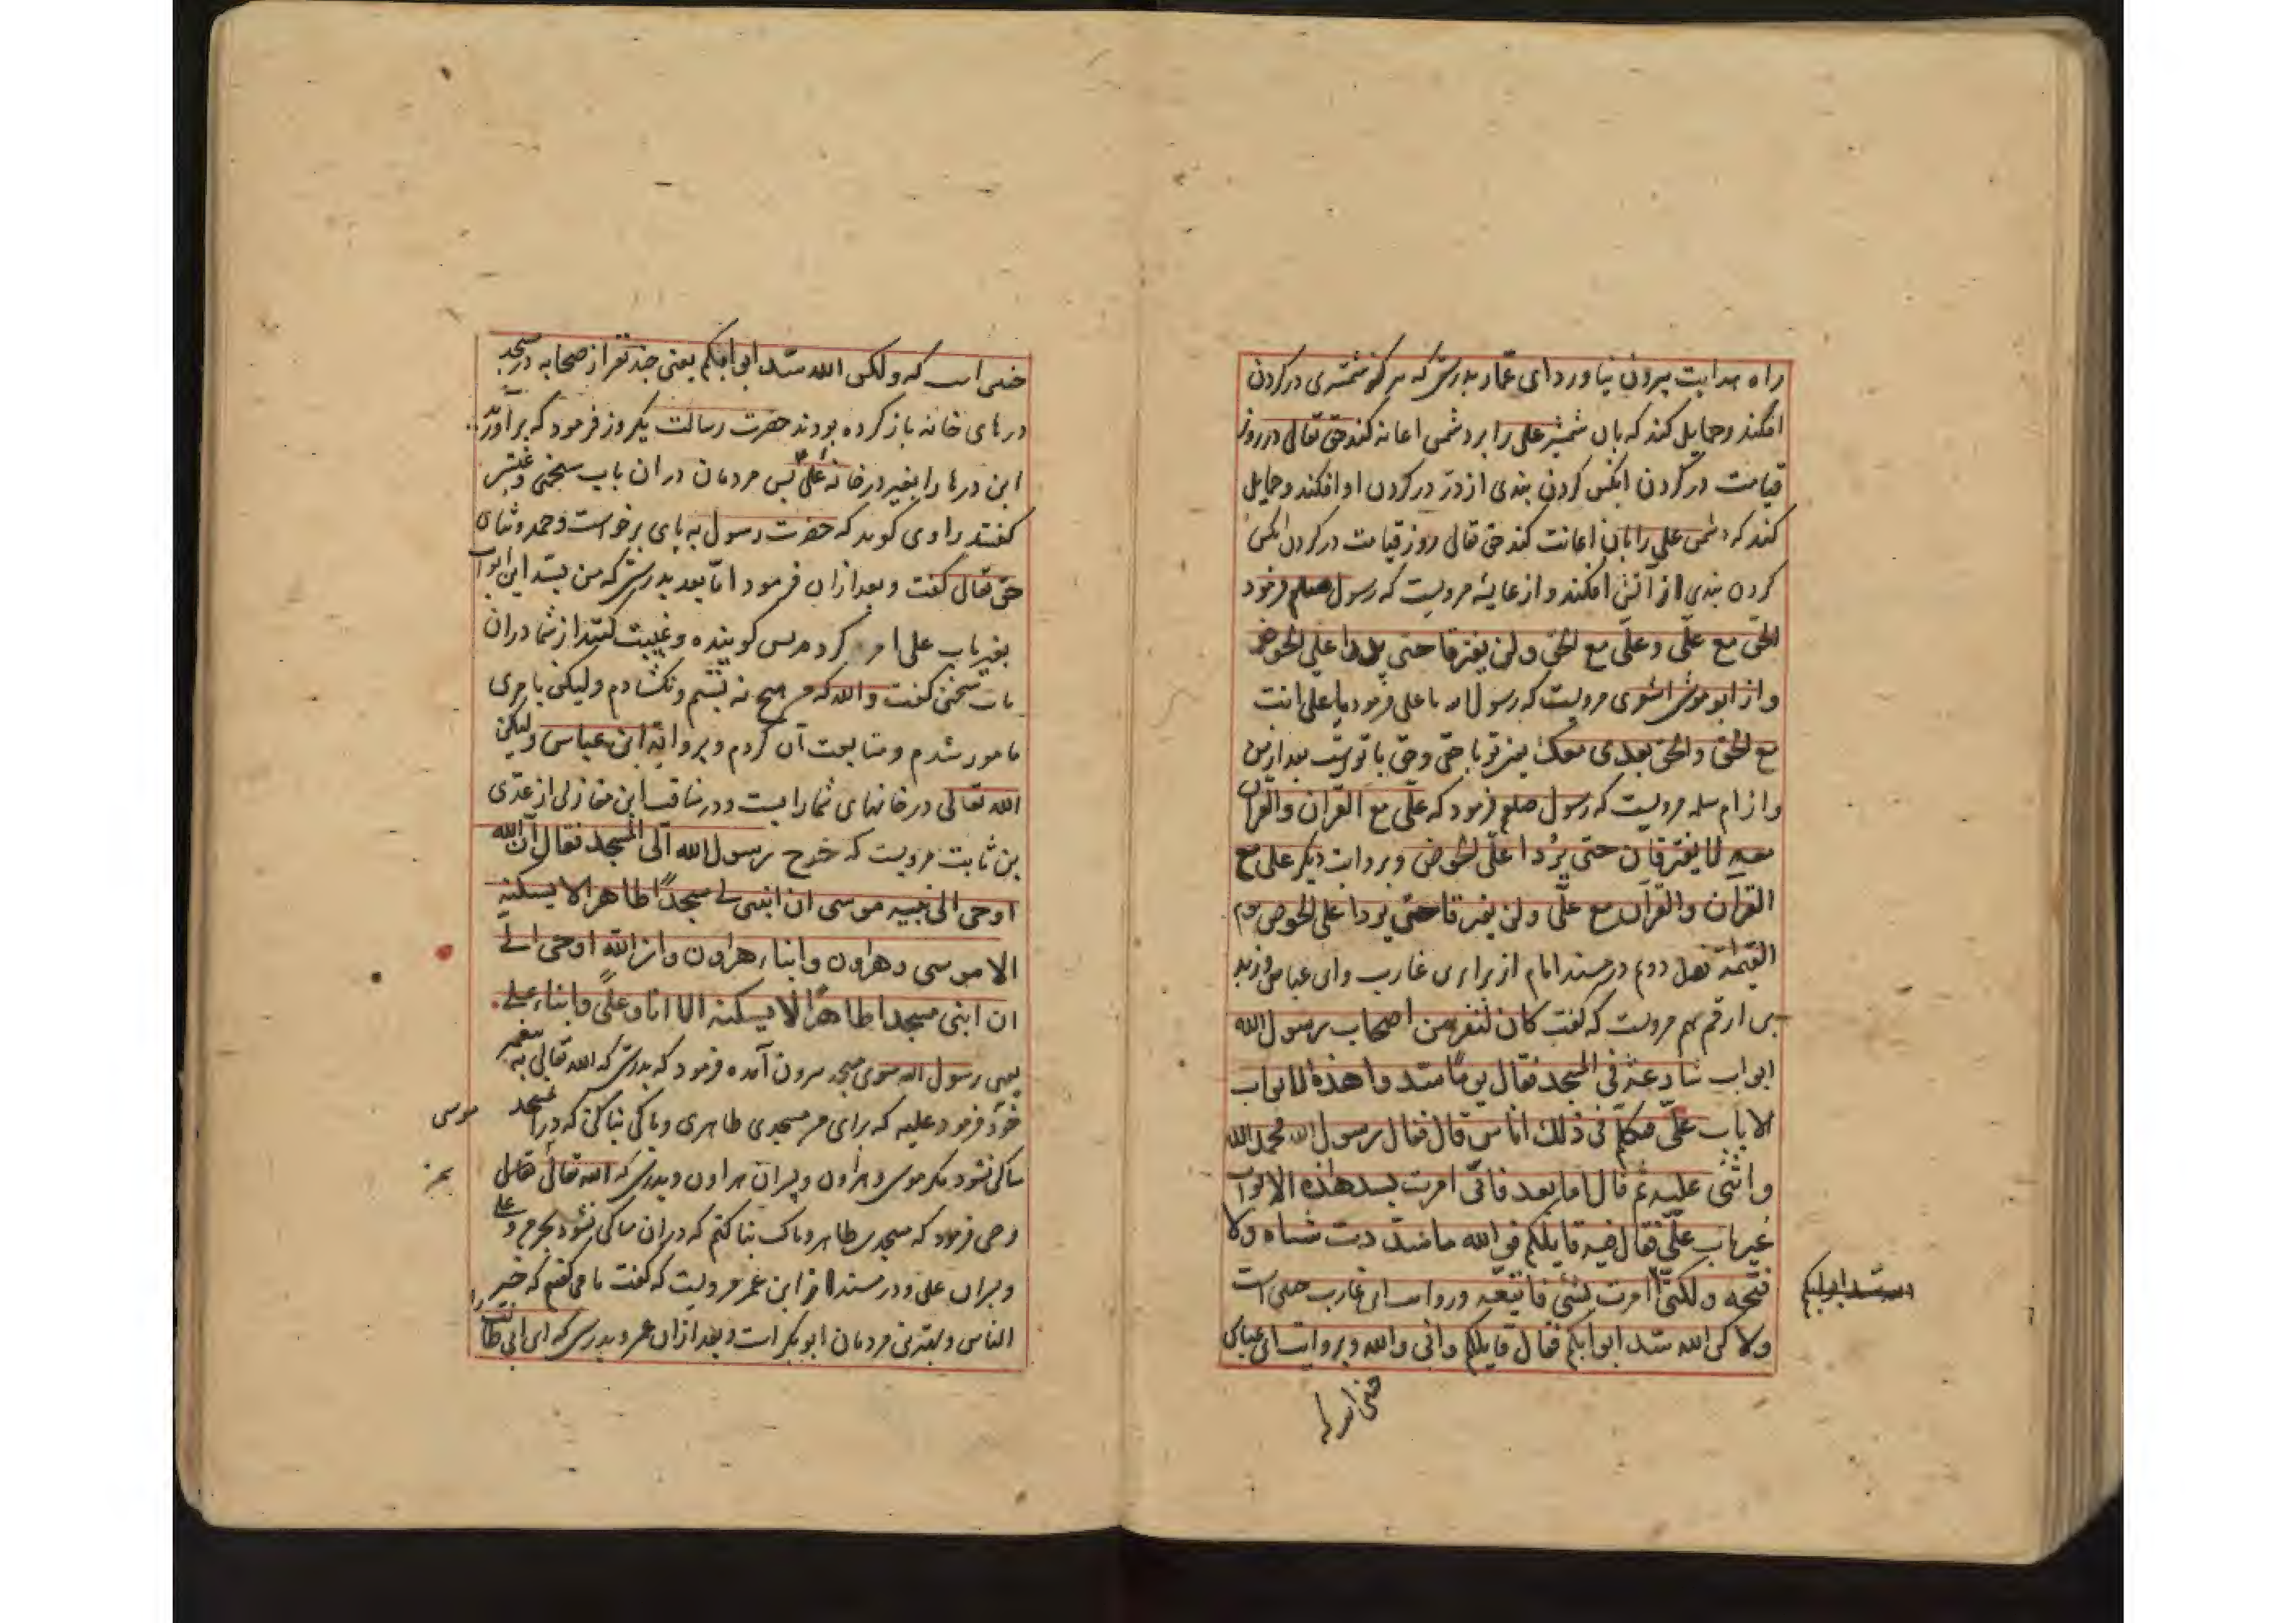 راه هدایت بیرون نیاورد ای عمار بدرستی که هر که شمشیری در گردن
افکند و حمایل کند که بان شمشیر علی را بر دشمن اعانه کند حق تعالی در روز
قیامت در گردن انکس گردن بندی از در در گردن او افکند و حمایل
کند که دشمن علی را بان اعانت کند حق تعالی روز قیامت در گردن انکس
گردن بندی از آتش افکند و از عایشه مرویست که رسول صلعم فرمود
الحق مع علی و علی مع الحق و لن یفترقا حتی یردا علی الحوض
و از ابو موسی اشعری مرویست که رسول الله با علی فرمود یا علی انت
مع الحق و الحق بعدی معک یعنی تو با حقی و حق با توست بعد از من
و از ام سلمه مرویست که رسول صلعم فرمود که علی مع القران و القران
معه لا یفترقان حتی یردا علی الحوض و بروایت دیگر علی مع
القران و القرآن مع علی و لن یفترقا حتی یردا علی الحوض یوم
القیمة فصل دوم در مسند امام از براء بن عازب و ابن عباس و زید
بن ارقم هم مرویست که گفت کان لنفر من اصحاب رسول الله
ابواب شارعة فی المسجد فقال یوما سدوا هذه الابواب
الا باب علی فتکلم فی ذلک اناس قال فقال رسول الله فحمد الله
و اثنی علیه ثم قال اما بعد فانی امرت بسد هذه الابواب
غیر باب علی فقال فیه قایلکم فی الله ما سددت شیاه ولا
فتحه و لکنی امرت بشئ فاتبعته و روایت ابن عازب چنین است
ولاکن الله سد ابوابکم فقال قایلکم و انی والله و بروایت ابن عباس
سد ابوابکم
چنین است که
چنین است که و لکن الله سد ابوابکم یعنی چند نفر از صحابه در مسجد
درهای خانه باز کرده بودند حضرت رسالت یکروز فرمود که بر آورید
این درها را بغیر در خانه علی پس مردمان در ان باب سخنی و غیبتی
گفتند راوی گوید که حضرت رسول به پای برخواست و حمد و ثنای
حق تعالی گفت و بعد از ان فرمود اما بعد بدرستی که من بسد این ابواب
بغیر باب علی امر کردم پس گوینده و غیبت کننده از شما در ان
باب سخنی گفت و الله که من هیچ نه بستم و نگشادم و لیکن بامری
مامور شدم و متابعت آن کردم و بروایة ابن عباس ولیکن
الله تعالی در خانهای شما را بست و در مناقب ابن مغازلی از عدی
بن ثابت مرویست که خرج رسول الله الی المسجد فقال ان الله
اوحی الی نبیه موسی ان ابنی لی مسجدا طاهرا لا یسکنه
الا موسی و هراون و ابناء هراون و ان الله اوحی الی
ان ابنی مسجدا طاهرا لا یسکنه الا انا و علی و ابناء علی
یعنی رسول الله سوی مسجد بیرون آمده فرمود که بدرستی که الله تعالی به پیغمبر
خود فرمود علیه که برای من مسجدی طاهری و پاکی بنا کن که در ان مسجد
موسی
ساکن نشود مگر موسی و هراون و پسران هراون و بدرستی که الله تعالی
وحی فرمود که مسجدی طاهر و پاک بنا کنم که در ان ساکن نشود بجز من و علی
و پسران علی و در مسند از ابن عمر مرویست که گفت ما می گفتیم که خیر
الناس و بهترین مردمان ابو بکر است و بعد از ان عمر و بدرستی که ابن ابی طالب را